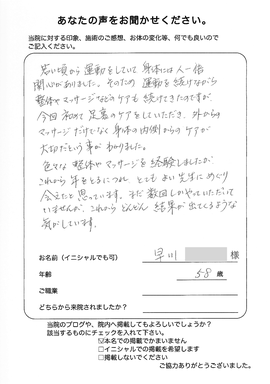 あなたの声をお聞かせください。
当院に対する印象、施術のご感想、お体の変化等、何でも良いので
ご記入ください。
若い頃から運動をしていて身体には人一倍
関心がありました。そのため運動を続けながら
整体やマッサージなどのケアも続けてきたのですが、
今回初めて足裏のケアをしていただき、外からの
マッサージだけでなく身体の内側からのケアが
大切だという事がわかりました。
色々な整体やマッサージを経験しましたが
これから年をとるにつれ とても良い先生にめぐり
会えたと思っています。まだ数回しかやっていただいて
いませんが、これから どんどん 結果が出てくるような
気がしています。
お名前(イニシャルでも可) 早川 様
年齢 58 歳
ご職業
どちらから来院されましたか?
当院のブログや、院内へ掲載してもよろしいでしょうか?
該当するものにチェックを入れて下さい。
☑本名での掲載でかまいません
□イニシャルでの掲載を希望します
□掲載しないでください
ご協力ありがとうございました。